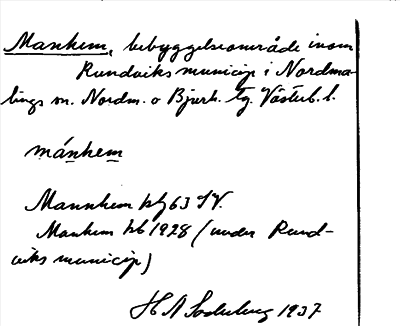 Mankem, bebyggelseområde inom
Rundviks municip i Nordma-
lings sn. Nordm. o Bjurh. tg. Västerb. l.
mánhem
Mannhem kbj 63 SV.
Manhem kb 1928 (under Rund-
viks municip)
H A Söderberg 1937